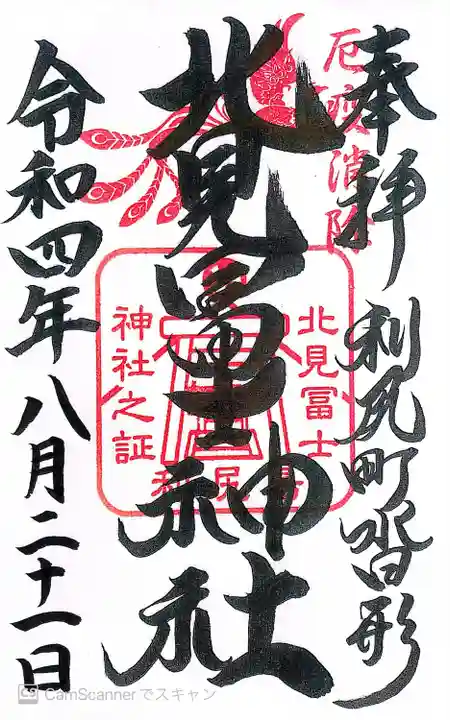 奉拝
利尻町沓形
厄疫消除
北見冨士神社
北見冨士
神社之証
利尻島
令和四年八月二十一日
CamScannerでスキャン